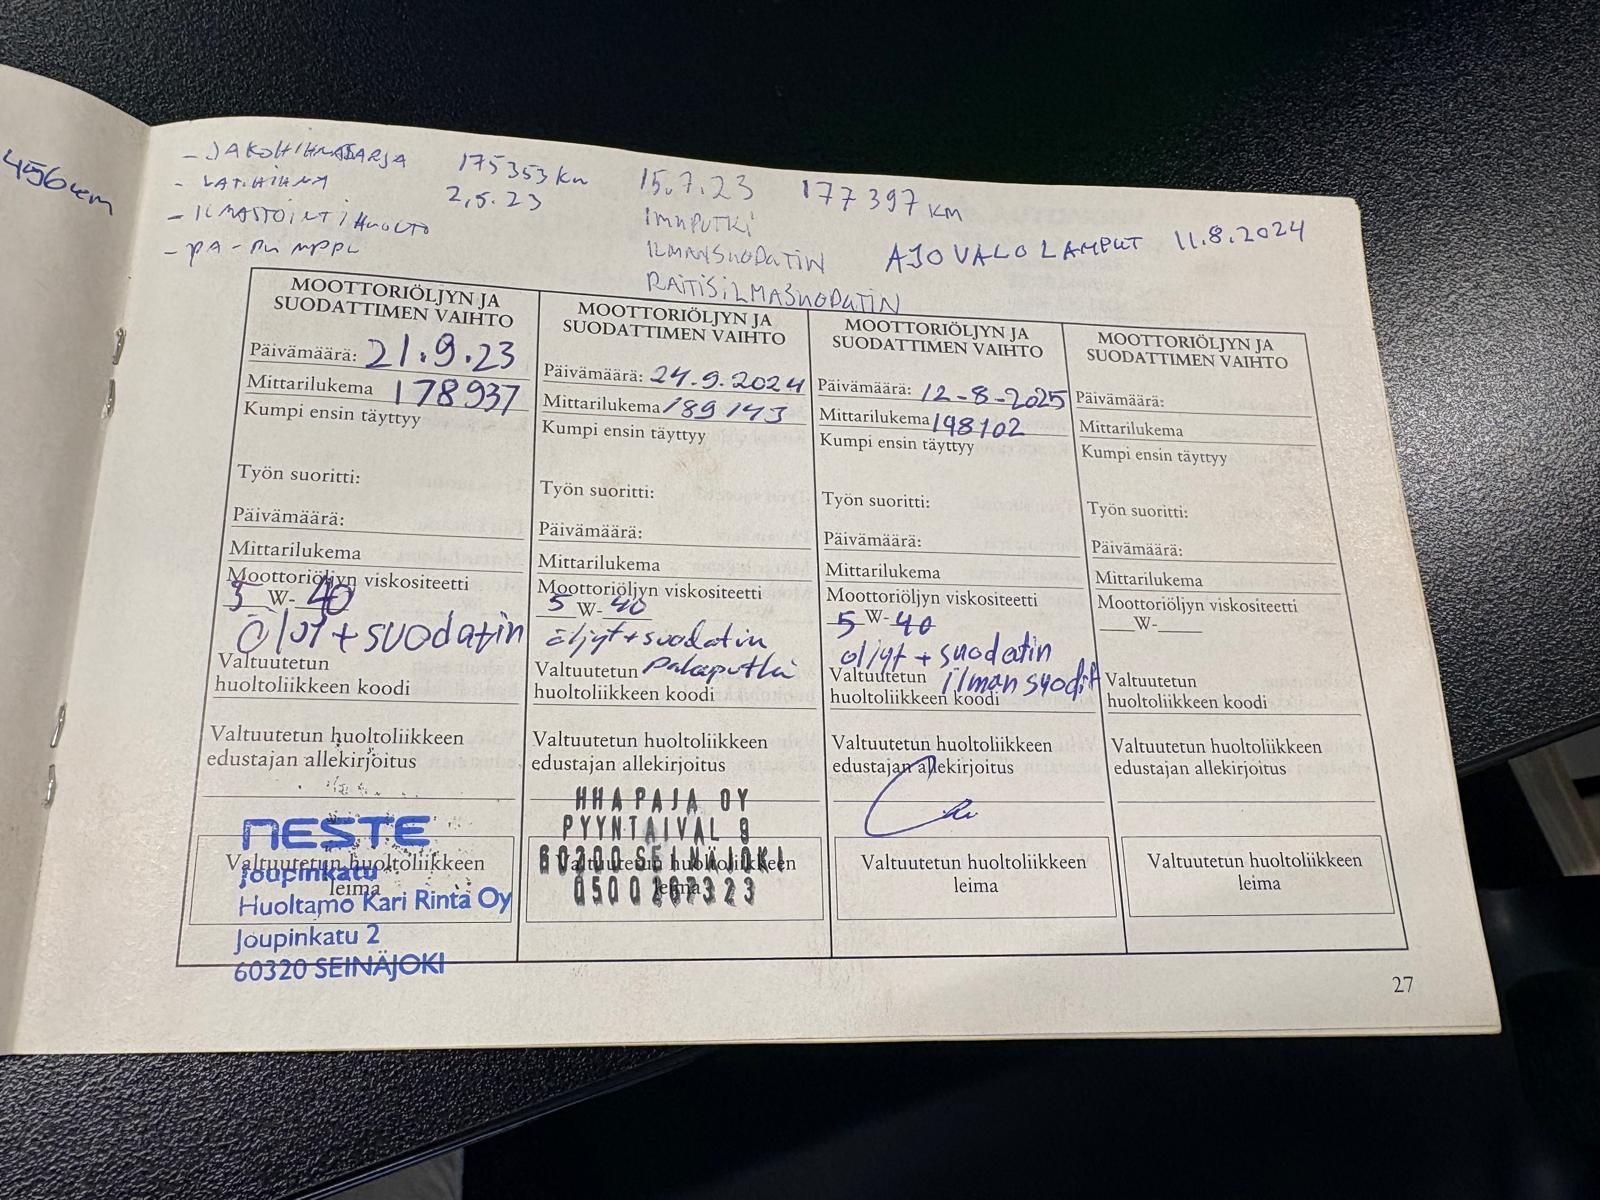 456
- JAKOHIHNASARJA 175353 km
2.5.23
- ILMASTOINTIHUOLTO
15.7.23 177397 KM
IMUPUTKI
ILMANSUODATIN
RAITISILMASUODATIN
AJOVALOLAMPUT 11.8.2024
MOOTTORIÖLJYN JA
SUODATTIMEN VAIHTO
Päivämäärä: 21.9.23
Mittarilukema 178937
Kumpi ensin täyttyy
Työn suoritti:
Päivämäärä:
Mittarilukema
Moottoriöljyn viskositeetti
5 W- 40
ölyt + suodatin
Valtuutetun
huoltoliikkeen koodi
Valtuutetun huoltoliikkeen
edustajan allekirjoitus
Valtuutetun huoltoliikkeen
leima
NESTE
Joupinkatu
Huoltamo Kari Rinta Oy
Joupinkatu 2
60320 SEINÄJOKI
MOOTTORIÖLJYN JA
SUODATTIMEN VAIHTO
Päivämäärä: 24.9.2024
Mittarilukema 189143
Kumpi ensin täyttyy
Työn suoritti:
Päivämäärä:
Mittarilukema
Moottoriöljyn viskositeetti
5 W- 40
öljyt + suodatin
pakaputki
Valtuutetun
huoltoliikkeen koodi
Valtuutetun huoltoliikkeen
edustajan allekirjoitus
HHAPAJA OY
PYYNTAIVAL 8
60200 SEINÄJOKI
0500267323
Valtuutetun huoltoliikkeen
leima
MOOTTORIÖLJYN JA
SUODATTIMEN VAIHTO
Päivämäärä: 12-8-2025
Mittarilukema 198102
Kumpi ensin täyttyy
Työn suoritti:
Päivämäärä:
Mittarilukema
Moottoriöljyn viskositeetti
5 W- 40
öljyt + suodatin
ilman suodit
Valtuutetun
huoltoliikkeen koodi
Valtuutetun huoltoliikkeen
edustajan allekirjoitus
Valtuutetun huoltoliikkeen
leima
MOOTTORIÖLJYN JA
SUODATTIMEN VAIHTO
Päivämäärä:
Mittarilukema
Kumpi ensin täyttyy
Työn suoritti:
Päivämäärä:
Mittarilukema
Moottoriöljyn viskositeetti
___W-____
Valtuutetun
huoltoliikkeen koodi
Valtuutetun huoltoliikkeen
edustajan allekirjoitus
Valtuutetun huoltoliikkeen
leima
27